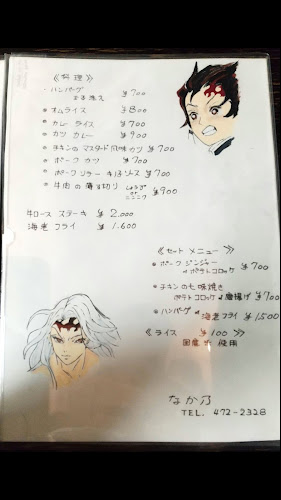 《料理》
・ハンバーグ ¥700
玉子添え
・オムライス ¥800
・カレーライス ¥700
・カツカレー ¥900
・チキンのマスタード風味カツ ¥700
・ポークカツ ¥700
・ポークソテー ¥700
・牛肉の薄切り しょうが or ニンニク ¥900
牛ロース ステーキ ¥2,000
海老フライ ¥1,600
《セットメニュー》
・ポークジンジャー
ポテトコロッケ ¥700
・チキンの七味焼き
ポテトコロッケ 唐揚げ ¥700
・ハンバーグ
海老フライ ¥1500
《ライス ¥100》
国産米使用
なか乃
TEL. 472-2328